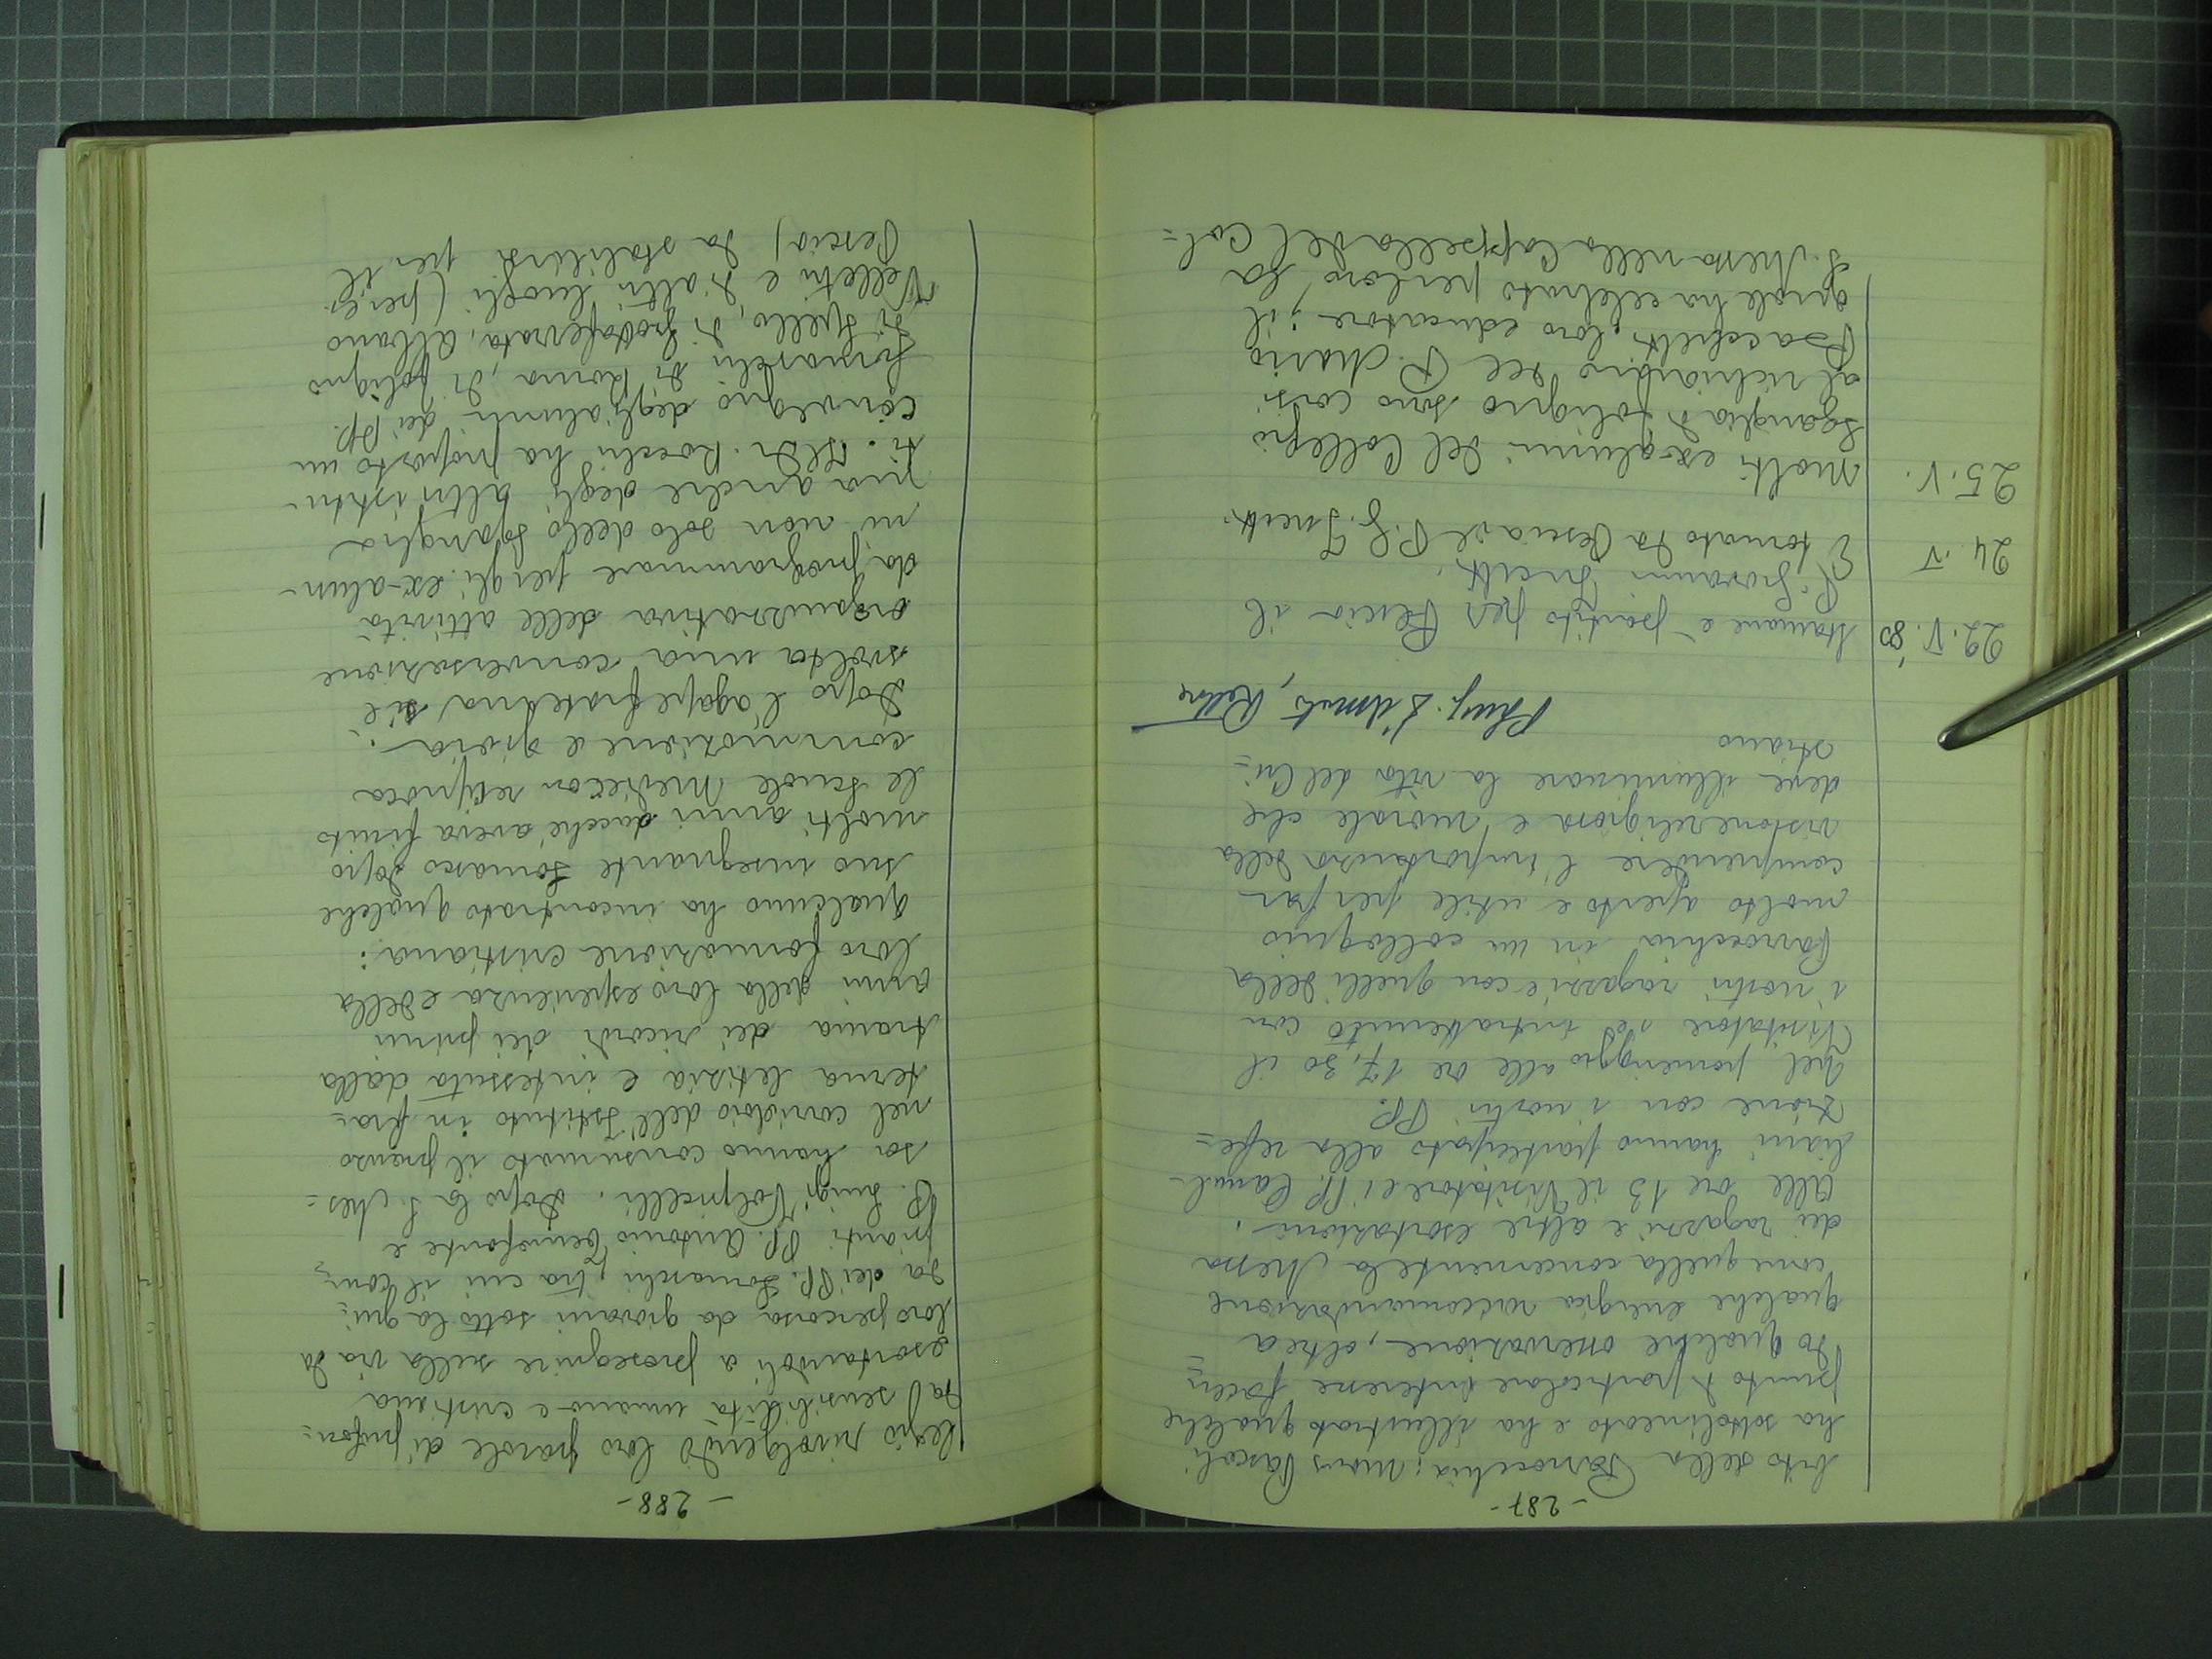 - 287 -
bito della Parrocchia; Mons Pascoli
ha sottolineato e ha illustrato qualche
punto di particolare interesse facen=
do qualche osservazione, oltre a
qualche energica raccomandazione
come quella concernente la Messa
dei ragazzi e altre esortazioni.
Alle ore 13 il Visitatore e i PP. Camil-
liani hanno partecipato alla refe=
zione con i nostri PP.
Nel pomeriggio alle ore 17,30 il
Visitatore si è intrattenuto con
i nostri ragazzi e con quelli della
Parrocchia in un colloquio
molto aperto e utile per far
comprendere l'importanza della
visione religiosa e morale che
deve illuminare la vita del Cri=
stiano
P. Luigi D'Amato, Rettore
22.V.'80 Stamane è partito per Pescia il
P. Giovanni Gneitti.
24.V È tornato da Pescia il P. G. Gneitti.
25.V. Molti ex-alunni del Collegio
Sgariglia di Foligno sono corsi
al richiamo del P. Mario
Bacchetti, loro educatore, il
quale ha celebrato per loro la
S. Messa nella Cappella del Col=
- 288 -
legio rivolgendo loro parole di profon=
da sensibilità umana e cristiana
esortandoli a proseguire sulla via da
loro percorsa da giovani sotto la gui=
da dei PP. Somaschi, tra cui il com=
pianti PP. Antonio Temofonte e
P. Luigi Volpicelli. Dopo la S. Mes=
sa hanno consumato il pranzo
nel corridoio dell'Istituto in fra=
terna letizia e intessuta dalla
trama dei ricordi dei primi
anni della loro esperienza e della
loro formazione cristiana:
qualcuno ha incontrato qualche
suo insegnante Somasco dopo
molti anni dacché aveva finito
le Scuole Medie con reciproca
commozione e gioia.
Dopo l'agape fraterna, si è
svolta una conversazione
organizzativa delle attività
da programmare per gli ex-alun-
ni non solo dello Sgariglia
ma anche degli altri istitu-
ti. Il Dr. Rocchi ha proposto un
convegno degli alunni dei PP.
Somaschi di Roma, di Foligno
di Spello, di Grottaferrata, Albano
Velletri e d'altri luoghi (per es.
Pescia) da stabilirsi per il